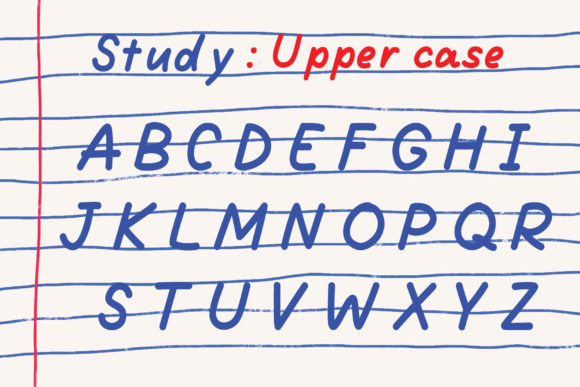 Study : Upper case
A B C D E F G H I
J K L M N O P Q R
S T U V W X Y Z